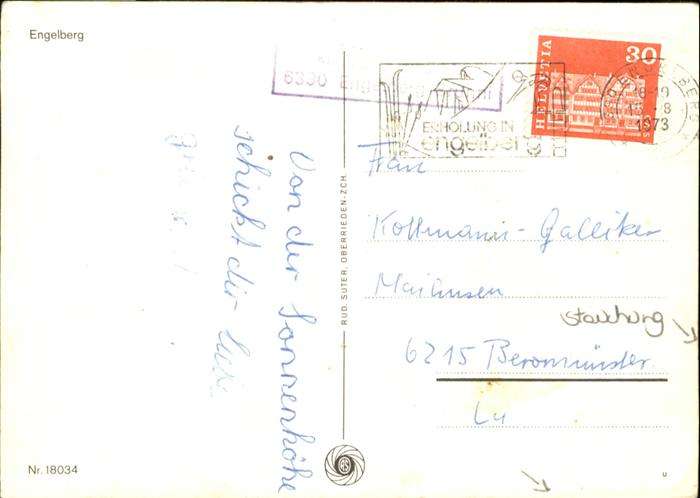 Engelberg
Von der Sonnenhöhe
schickt dir liebe
HELVETIA
30
6390
ERHOLUNG IN
engelberg
18-19
1973
Frau
Kottmann-Galliker
Maihusen
Stauchung
6215 Beromünster
Lu
RUD. SUTER, OBERRIEDEN-ZCH.
Nr. 18034